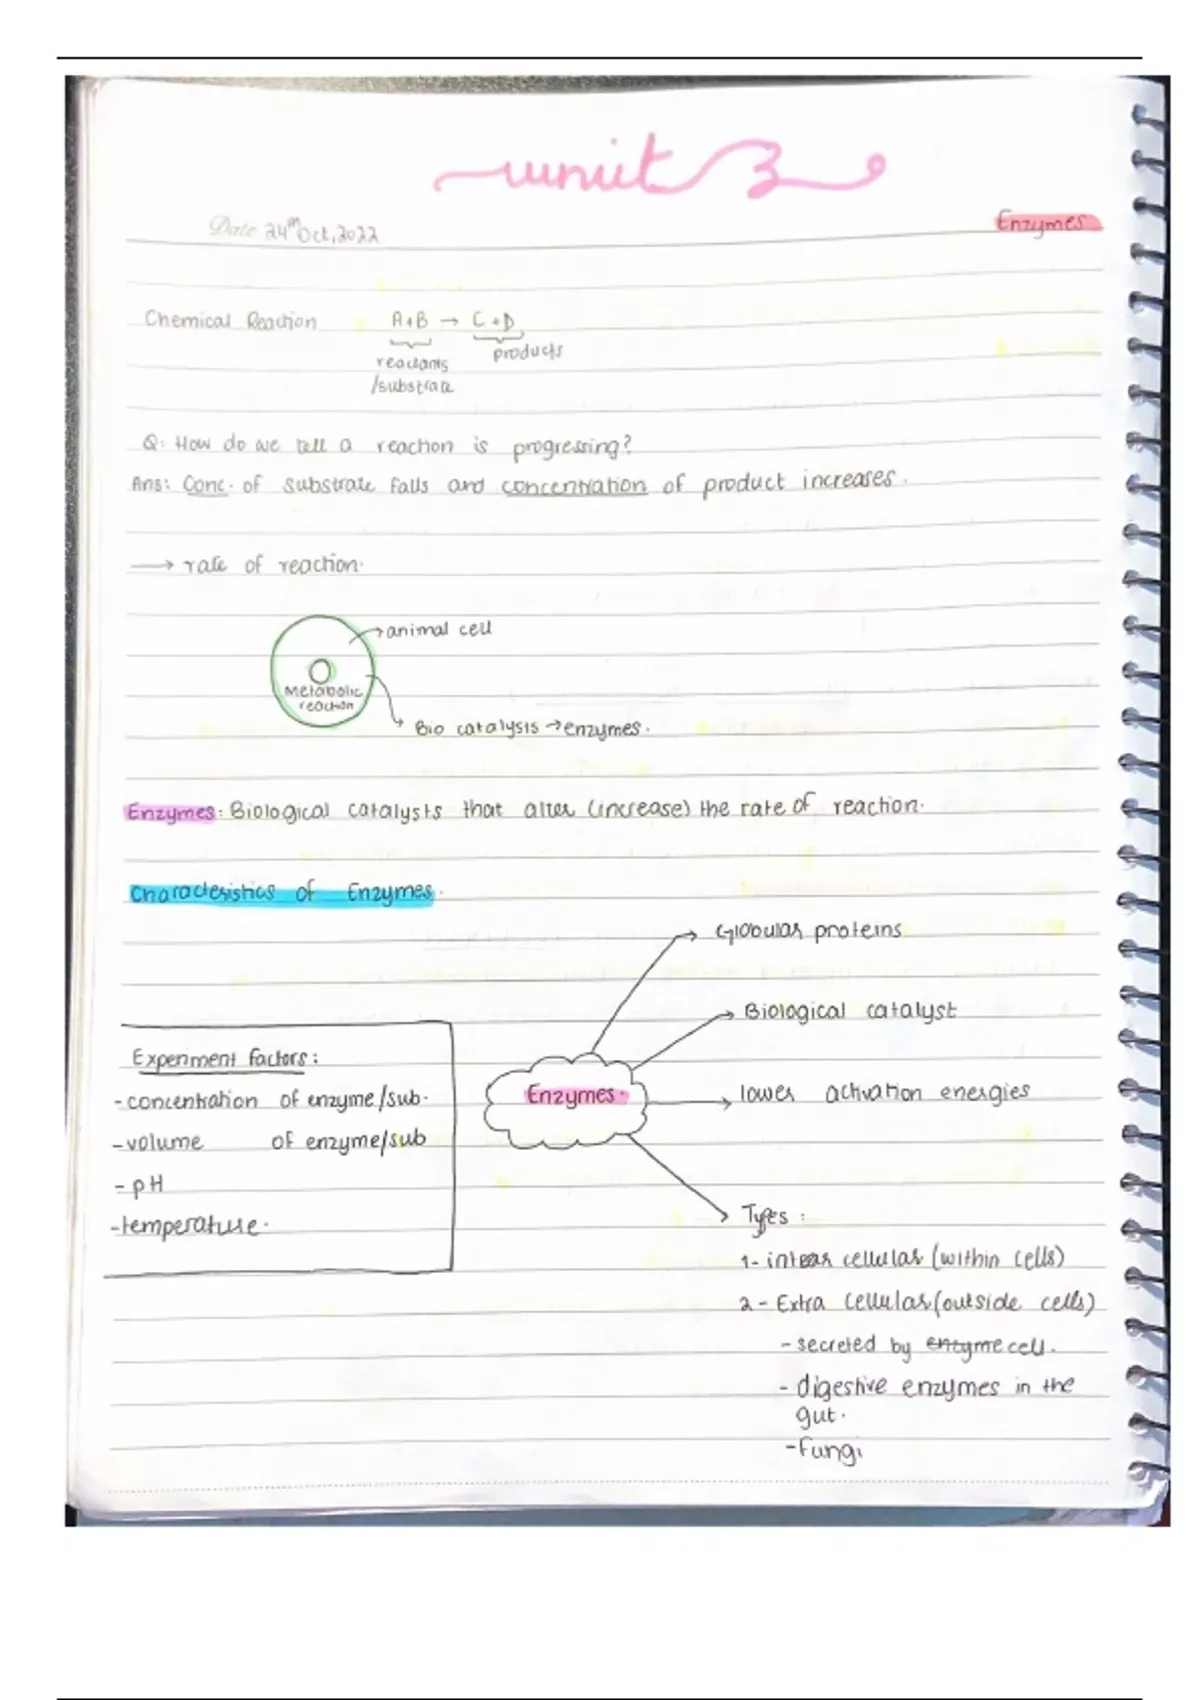 unit 3
Date 24th Oct, 2022
Enzymes
Chemical Reaction A+B → C+D
reactants products
/substrate
Q: How do we tell a reaction is progressing?
Ans: Conc. of substrate falls and concentration of product increases.
→ rate of reaction.
animal cell
Metabolic
reaction
Bio catalysis → enzymes.
Enzymes: Biological catalysts that alter (increase) the rate of reaction.
Characteristics of Enzymes.
Globular proteins
Biological catalyst
Experiment factors:
Enzymes.
lower activation energies
- concentration of enzyme/sub.
- volume of enzyme/sub
- pH
- temperature.
Types :
1- intra cellular (within cells)
2- Extra cellular (outside cells)
- secreted by enzyme cell.
- digestive enzymes in the
gut.
- fungi